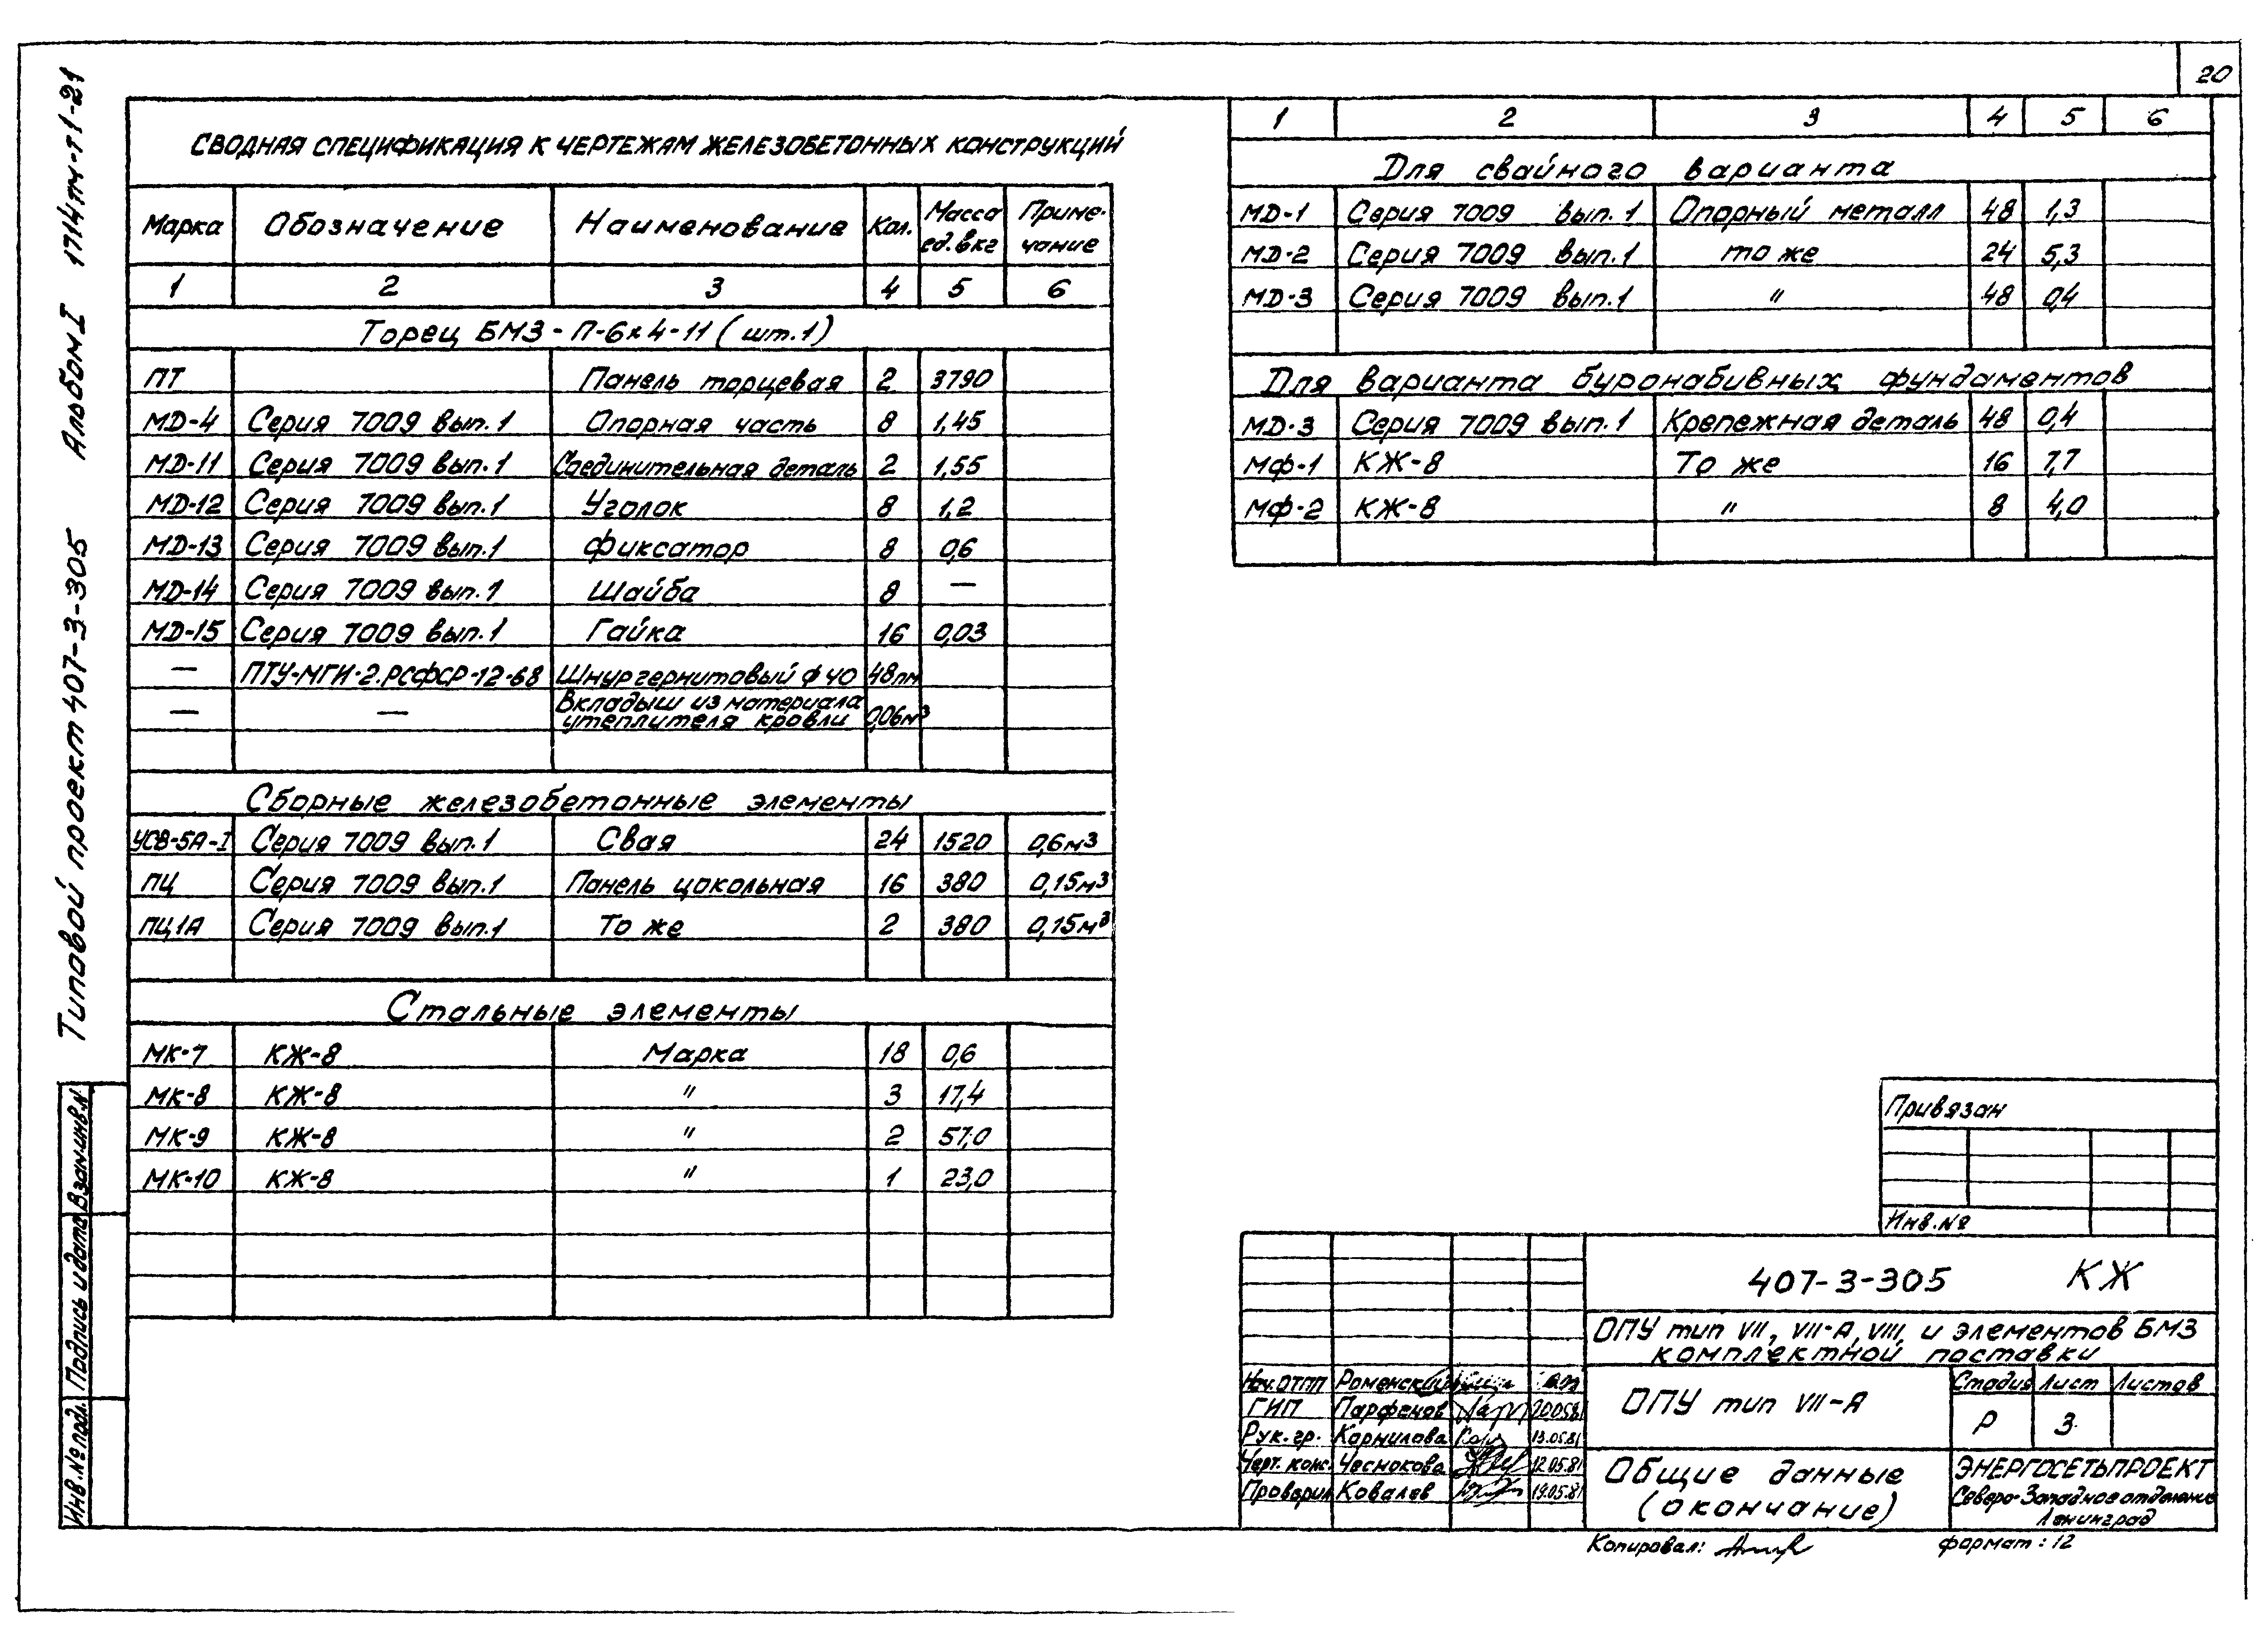 20
Типовой проект 407-3-305 Альбом I 1714тм-т1-21
СВОДНАЯ СПЕЦИФИКАЦИЯ К ЧЕРТЕЖАМ ЖЕЛЕЗОБЕТОННЫХ КОНСТРУКЦИЙ
Марка Обозначение Наименование Кол. Масса ед. в кг Приме-чание
1 2 3 4 5 6
Торец БМЗ-П-6х4-11 (шт.1)
ПТ Панель торцевая 2 3790
МД-4 Серия 7009 вып.1 Опорная часть 8 1,45
МД-11 Серия 7009 вып.1 Соединительная деталь 2 1,55
МД-12 Серия 7009 вып.1 Уголок 8 1,2
МД-13 Серия 7009 вып.1 Фиксатор 8 0,6
МД-14 Серия 7009 вып.1 Шайба 8 —
МД-15 Серия 7009 вып.1 Гайка 16 0,03
— ПТУ-МГИ-2.РСФСР-12-68 Шнур гернитовый ф40 48пм
— — Вкладыш из материала утеплителя кровли 0,06м³
Сборные железобетонные элементы
УСВ-5А-I Серия 7009 вып.1 Свая 24 1520 0,6м³
ПЦ Серия 7009 вып.1 Панель цокольная 16 380 0,15м³
ПЦ1А Серия 7009 вып.1 То же 2 380 0,15м³
Стальные элементы
МК-7 КЖ-8 Марка 18 0,6
МК-8 КЖ-8 " 3 17,4
МК-9 КЖ-8 " 2 57,0
МК-10 КЖ-8 " 1 23,0
1 2 3 4 5 6
Для свайного варианта
МД-1 Серия 7009 вып.1 Опорный металл 48 1,3
МД-2 Серия 7009 вып.1 то же 24 5,3
МД-3 Серия 7009 вып.1 " 48 0,4
Для варианта буронабивных фундаментов
МД-3 Серия 7009 вып.1 Крепежная деталь 48 0,4
МФ-1 КЖ-8 То же 16 7,7
МФ-2 КЖ-8 " 8 4,0
Привязан
Инв.№
407-3-305 КЖ
ОПУ тип VII, VII-А, VIII, и элементов БМЗ
комплектной поставки
Нач.ОТПП Роменский
ГИП Парфенов 20.05.81
Рук. гр. Корнилова 13.05.81
Черт. конс. Чеснокова 12.05.81
Проверил Ковалев 19.05.81
ОПУ тип VII-А
Стадия Лист Листов
Р 3
Общие данные
(окончание)
ЭНЕРГОСЕТЬПРОЕКТ
Северо-Западное отделение
Ленинград
Копировал:
формат: 12
Инв.№ подл. Подпись и дата Взам.инв.№